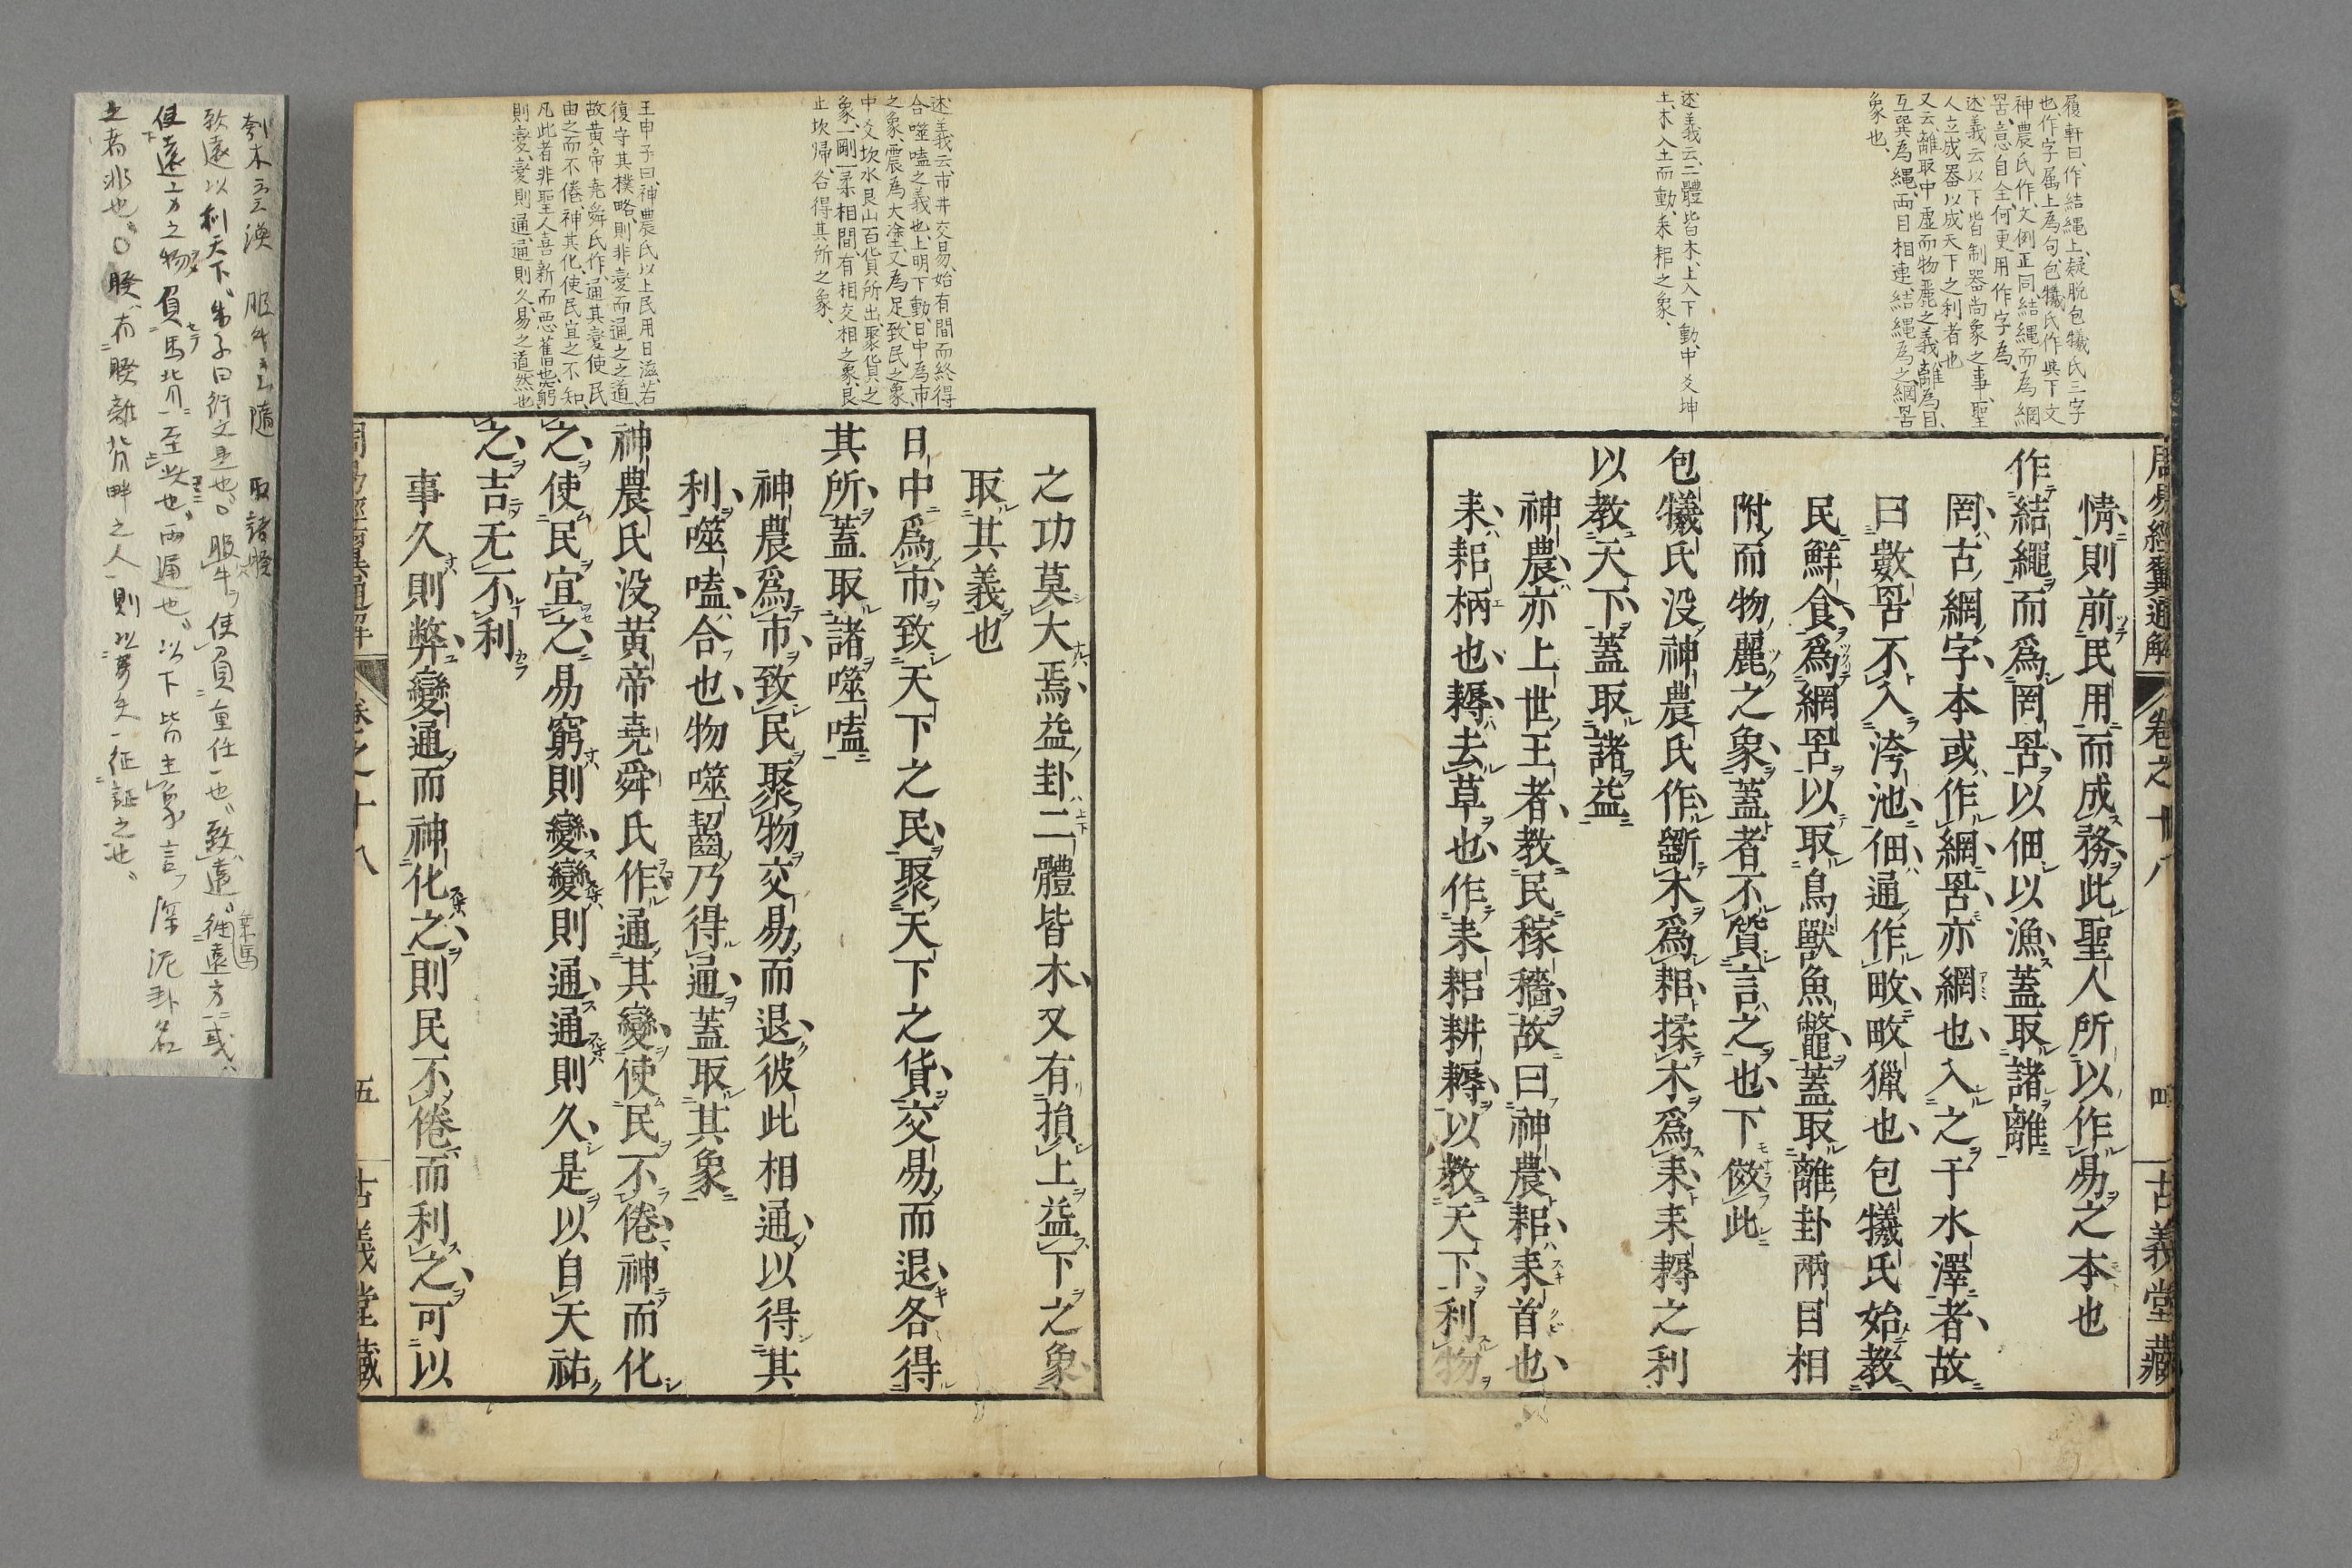 履軒曰、作結繩上、疑脱包犧氏三字
也、作字属上為句、包犧氏作與下文
神農氏作、文例正同、結繩而為網
罟、意自全、何更用作字為、
述義云、以下皆制器尚象之事、聖
人立成器以成天下之利者也、
又云、離取中虚而物麗之義、離為目、
互巽為繩、兩目相連、結繩為之、網罟
象也、
述義云、二體皆木、上入下動、中爻坤
土、木入土而動、耒耜之象、
周易經翼通解
卷之十八
四
古義堂藏
情則前民用而成務此聖人所以作易之本也
作結繩而爲罔罟以佃以漁蓋取諸離
罔古網字本或作網罟亦網也入之于水澤者故
曰數罟不入洿池佃通作畋畋獵也包犧氏始教
民鮮食爲網罟以取鳥獸魚鼈蓋取離卦兩目相
附而物麗之象蓋者不質言之也下倣此
包犧氏没神農氏作斲木爲耜揉木爲耒耒耨之利
以教天下蓋取諸益
神農亦上世王者教民稼穡故曰神農耜耒首也
耒耜柄也耨去草也作耒耜耕耨以教天下利物
述義云、市井交易、始有間而終得
合、噬嗑之義也、上明下動、日中為市
之象、震為大塗、又為足、致民之象、
中爻坎水艮山、百貨所出、聚貨之
象、一剛一柔相間、有相交相之象、艮
止坎帰、各得其所之象、
王申子曰、神農氏以上民用日滋、若
復守其樸略、則非變而通之之道、
故黄帝堯舜氏作、通其變、使民
由之而不倦、神其化、使民宜之不知、
凡此者非聖人喜新而悪舊也、窮
則變、變則通、通則久、易之道然也、
之功莫大焉益卦二體皆木又有損上益下之象
取其義也
日中爲市致天下之民聚天下之貨交易而退各得
其所蓋取諸噬嗑
神農爲市致民聚物交易而退彼此相通以得其
利噬嗑合也物噬齧乃得通蓋取其象
神農氏没黄帝堯舜氏作通其變使民不倦神而化
之使民宜之易窮則變變則通通則久是以自天祐
之吉无不利
事久則弊變通而神化之則民不倦而利之可以
五
古義堂藏
刳木云云渙　服牛云云隨　取諸睽
致遠以利天下、朱子曰衍文是也、〇服牛、使負重任也、致遠、
使遠方之物
之者非也、〇睽、有睽離